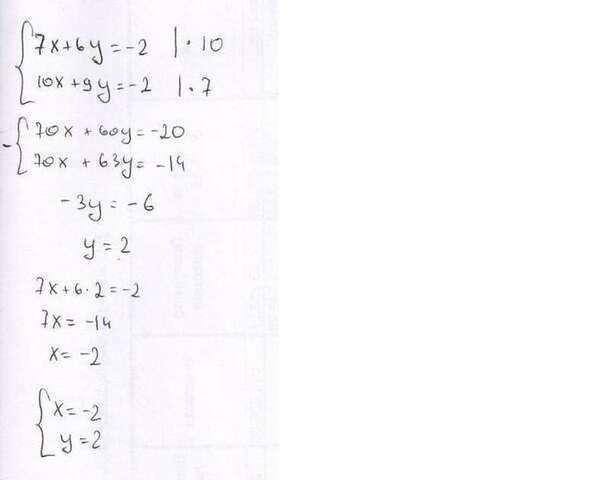 7x+6y=-2 |·10
10x+9y=-2 |·7
- 70x+60y=-20
70x+63y=-14
-3y=-6
y=2
7x+6·2=-2
7x=-14
x=-2
x=-2
y=2